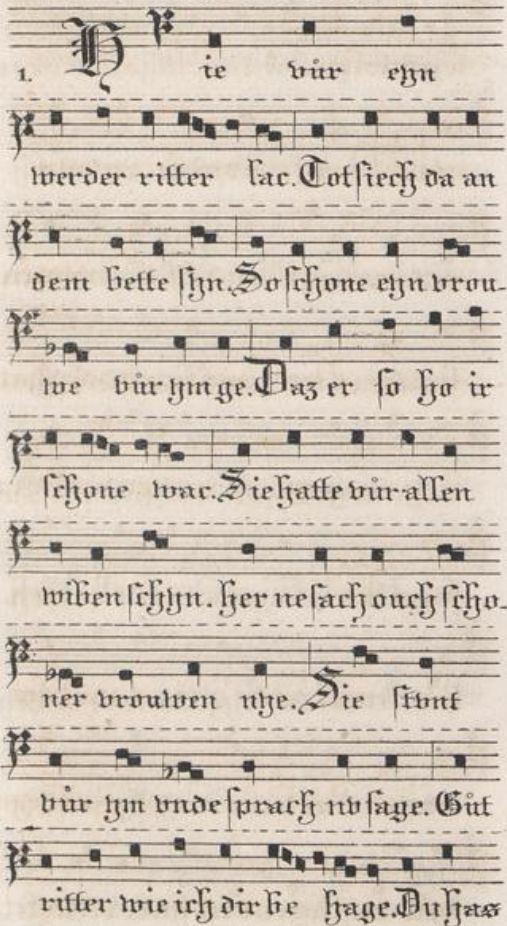 1. Hie vůr eyn
werder ritter lac. Tot siech da an
dem bette syn. So schone eyn vrou-
we vůr ym ge. Daz er so ho ir
schone wac. Sie hatte vůr allen
wiben schyn. her ne sach ouch scho-
ner vrouwen nye. Sie stvnt
vůr ym vnde sprach nv sage. Gůt
ritter wie ich dir be hage. Du has